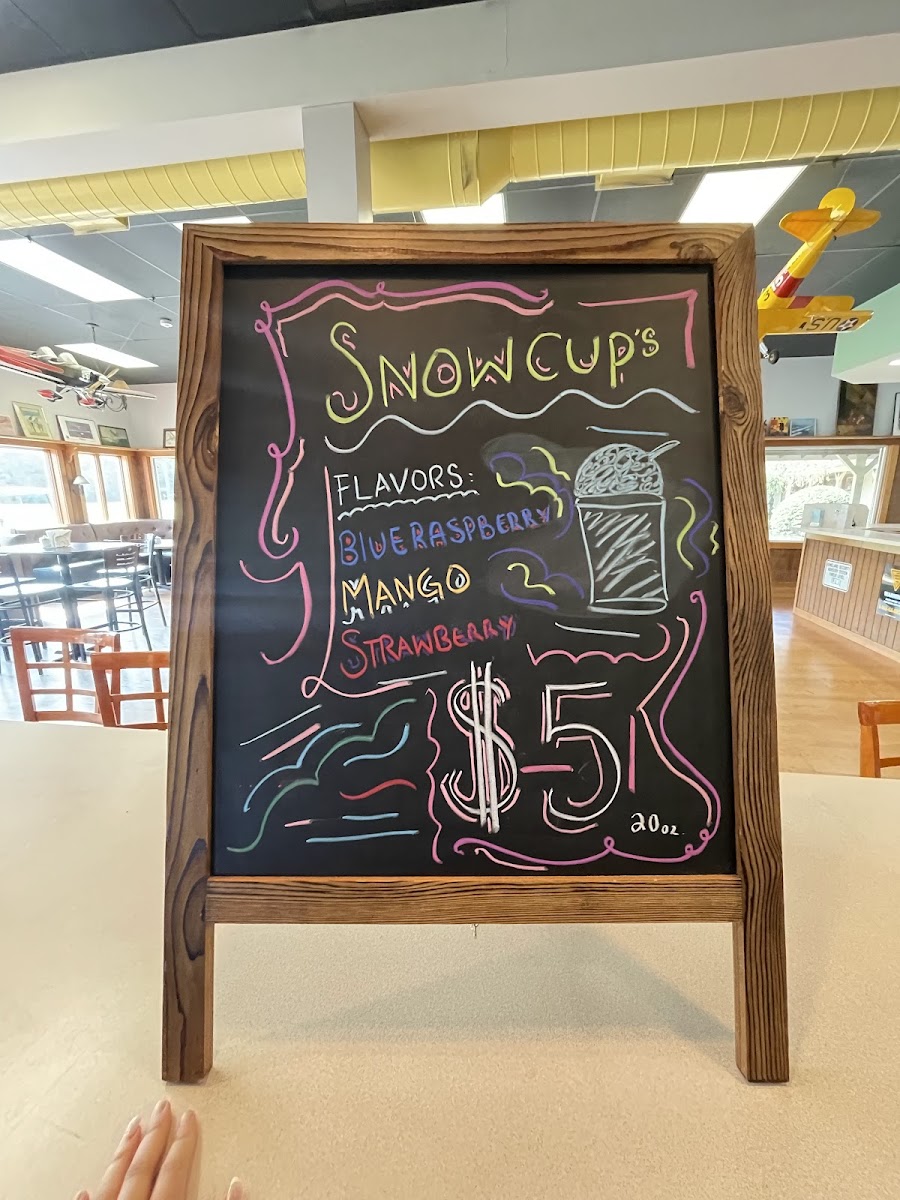 SNOW CUP'S
FLAVORS:
BLUE RASPBERRY
MANGO
STRAWBERRY
$5
20oz.
US